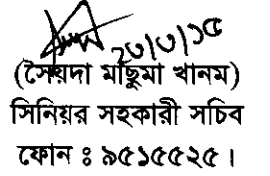 ২০/৩/১৫
(সৈয়দা মাছুমা খানম)
সিনিয়র সহকারী সচিব
ফোন ঃ ৯৫১৫৫২৫।